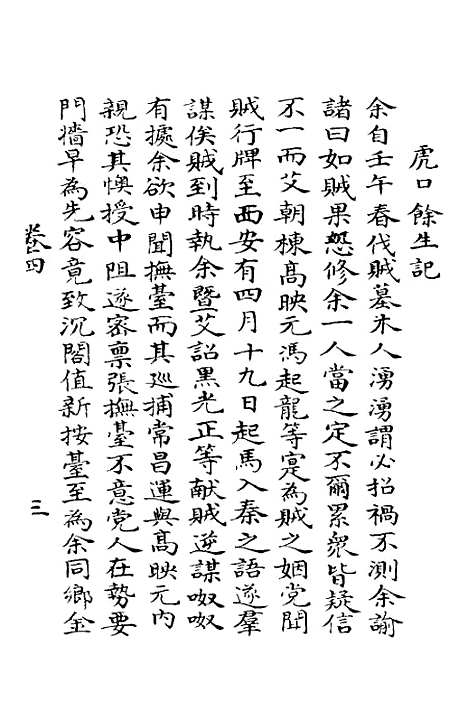 虎口餘生記
余自壬午春伐賊墓木人湧湧謂必招禍不測余諭
諸曰如賊果怨修余一人當之定不爾累衆皆疑信
不一而艾朝棟高映元馮起龍等寔為賊之姻党聞
賊行牌至西安有四月十九日起馬入秦之語遂羣
謀俟賊到時執余暨艾詔黑光正等献賊逆謀呶呶
有據余欲申聞撫臺而其巡捕常昌運與高映元内
親恐其懊授中阻遂密禀張撫臺不意党人在勢要
門墻早為先容竟致沉閣值新按臺至為余同鄉金
卷四
三